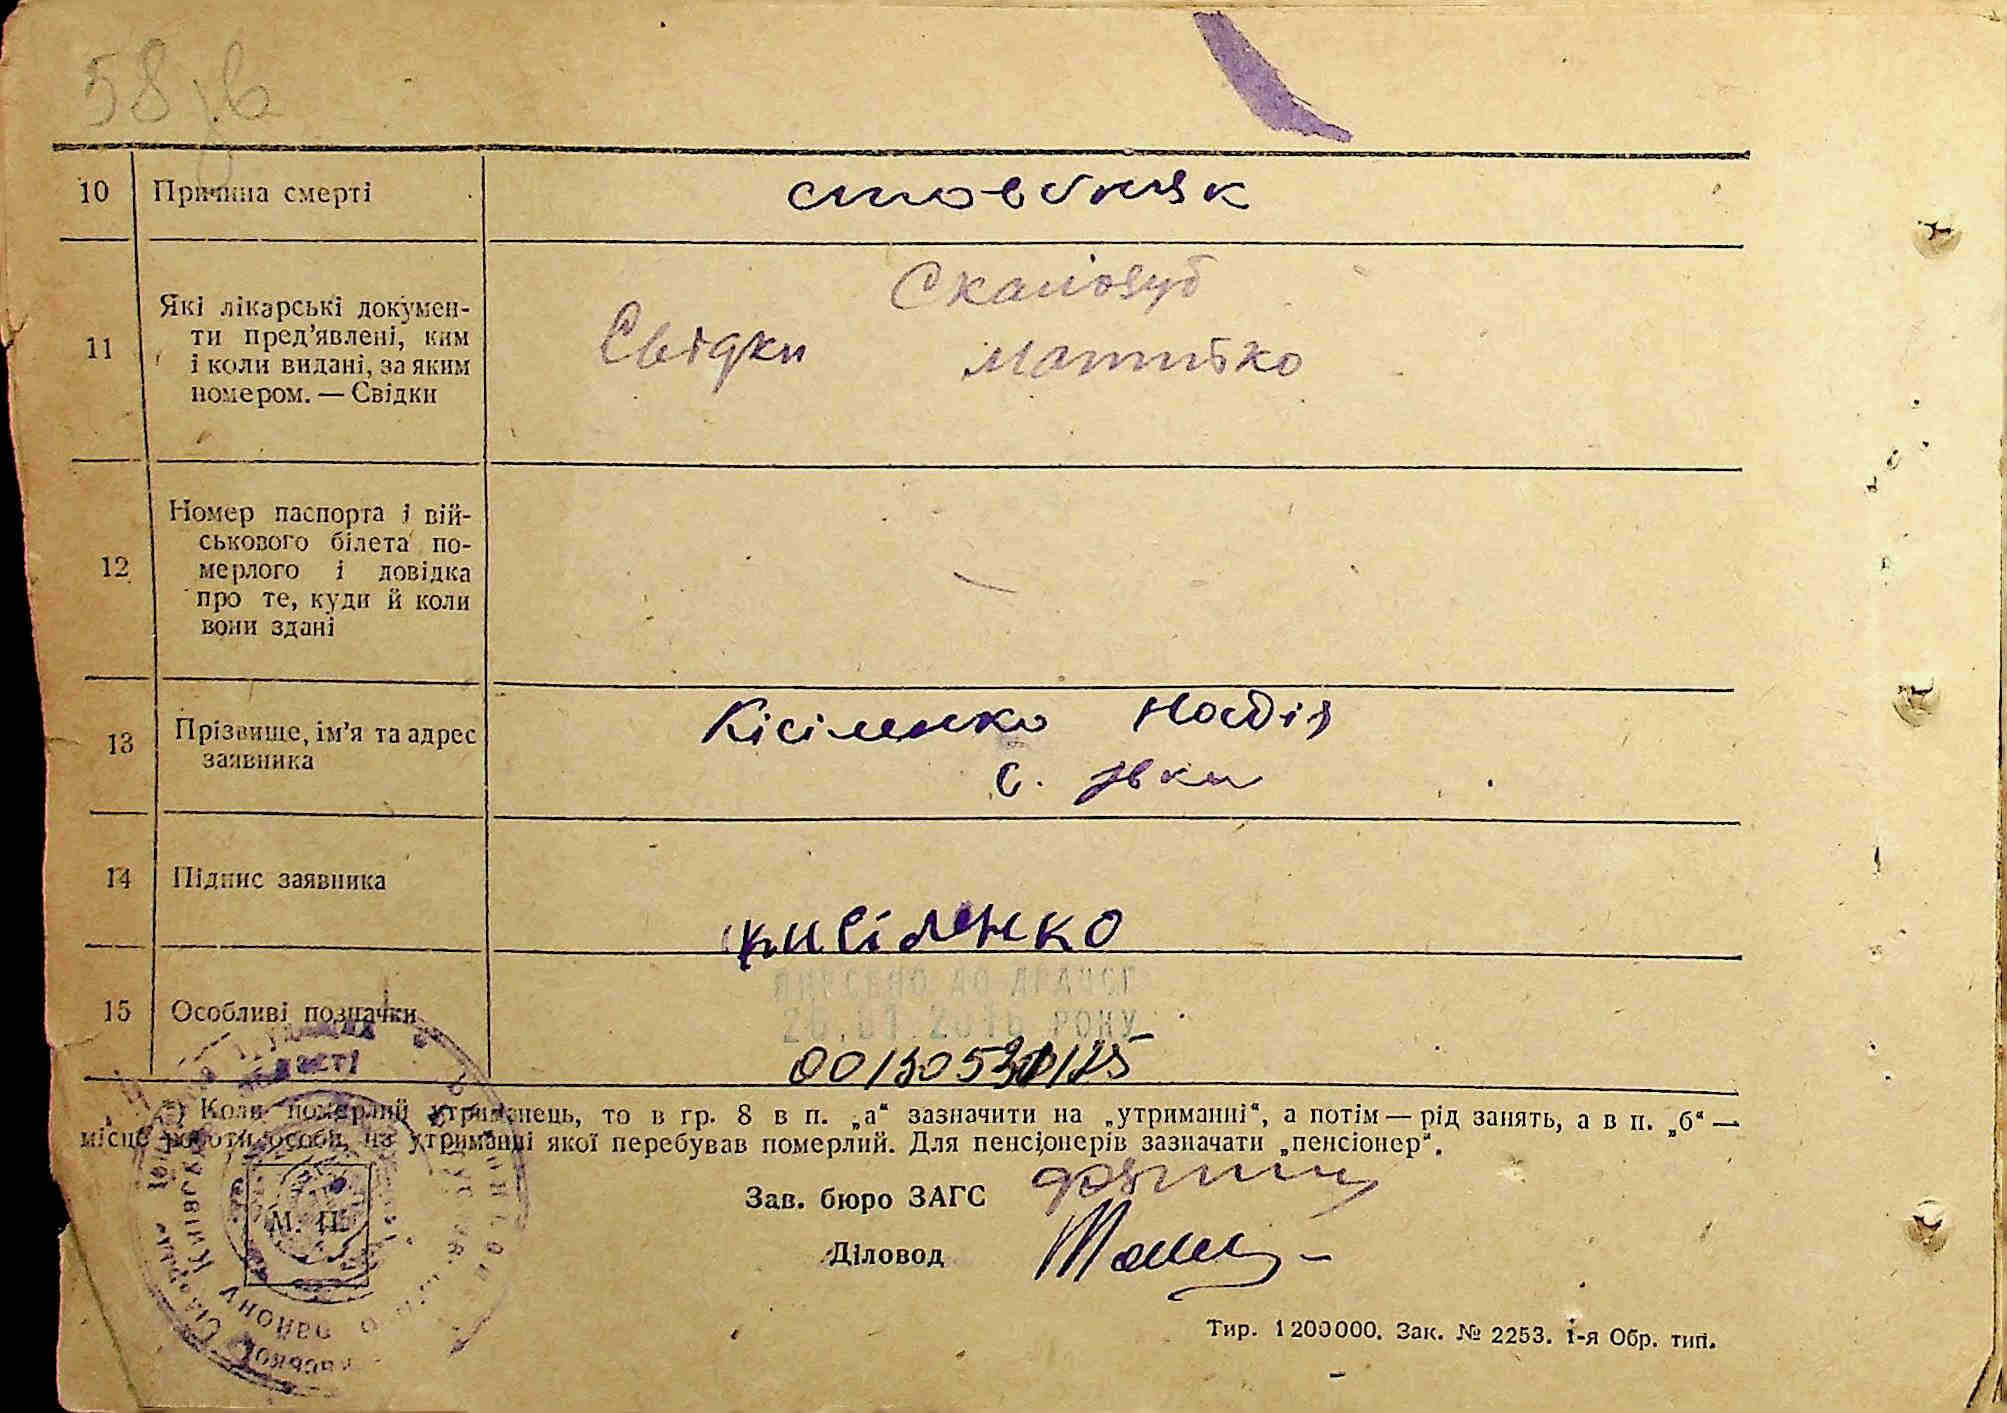 58
10 Причина смерті стовбняк
11 Які лікарські докумен-
ти пред’явлені, ким
і коли видані, за яким
номером. — Свідки
Скалозуб
Свідки
12 Номер паспорта і вій-
ськового білета по-
мерлого і довідка
про те, куди й коли
вони здані
13 Прізвище, ім’я та адрес
заявника
Кісіленко Надія
с.
14 Підпис заявника
кисіленко
15 Особливі позначки
ВНЕСЕНО ДО ДРАЦСГ
РОКУ
*) Коли померлий утриманець, то в гр. 8 в п. „а“ зазначити на „утриманні“, а потім — рід занять, а в п. „б“ —
місце роботи особи, на утриманні якої перебував померлий. Для пенсіонерів зазначати „пенсіонер“.
Зав. бюро ЗАГС
Діловод
М. П.
області
Київськ
району
Тир. 1200000. Зак. № 2253. 1-я Обр. тип.